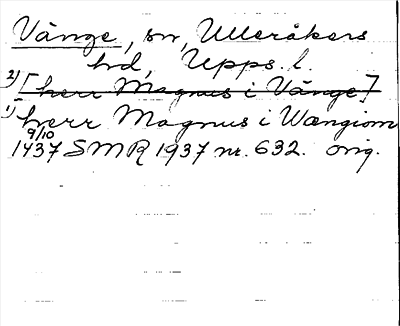 Vänge, sn, Ulleråkers
hd, Upps. l.
2) [herr Magnus i Vänge]
1) herr Magnus i Wængiom
9/10
1437 SMR 1937 nr. 632. orig.